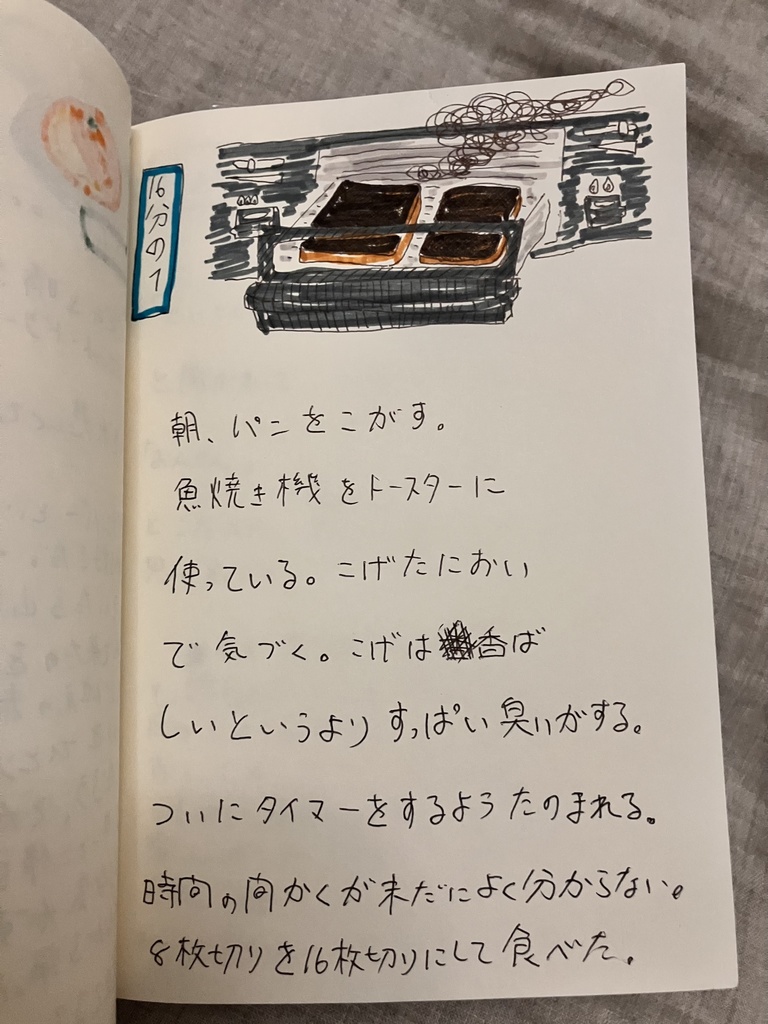 16分の1
朝、パンをこがす。
魚焼き機をトースターに
使っている。こげたにおい
で気づく。こげは香ば
しいというよりすっぱい臭いがする。
ついにタイマーをするようたのまれる。
時間の間かくが未だによく分からない。
8枚切りを16枚切りにして食べた。